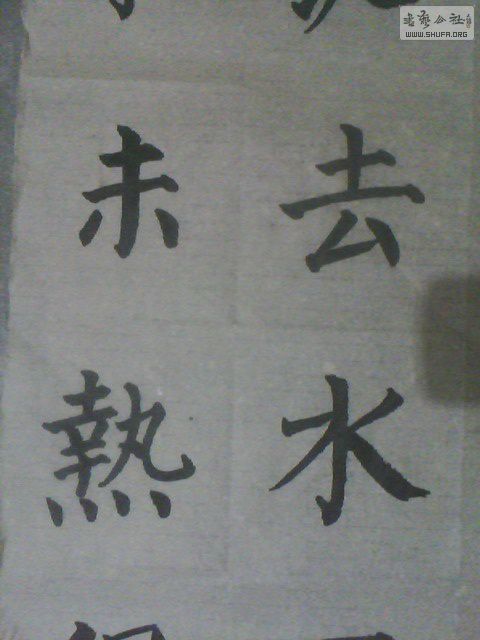 去水
未熱
书艺公社
WWW.SHUFA.ORG